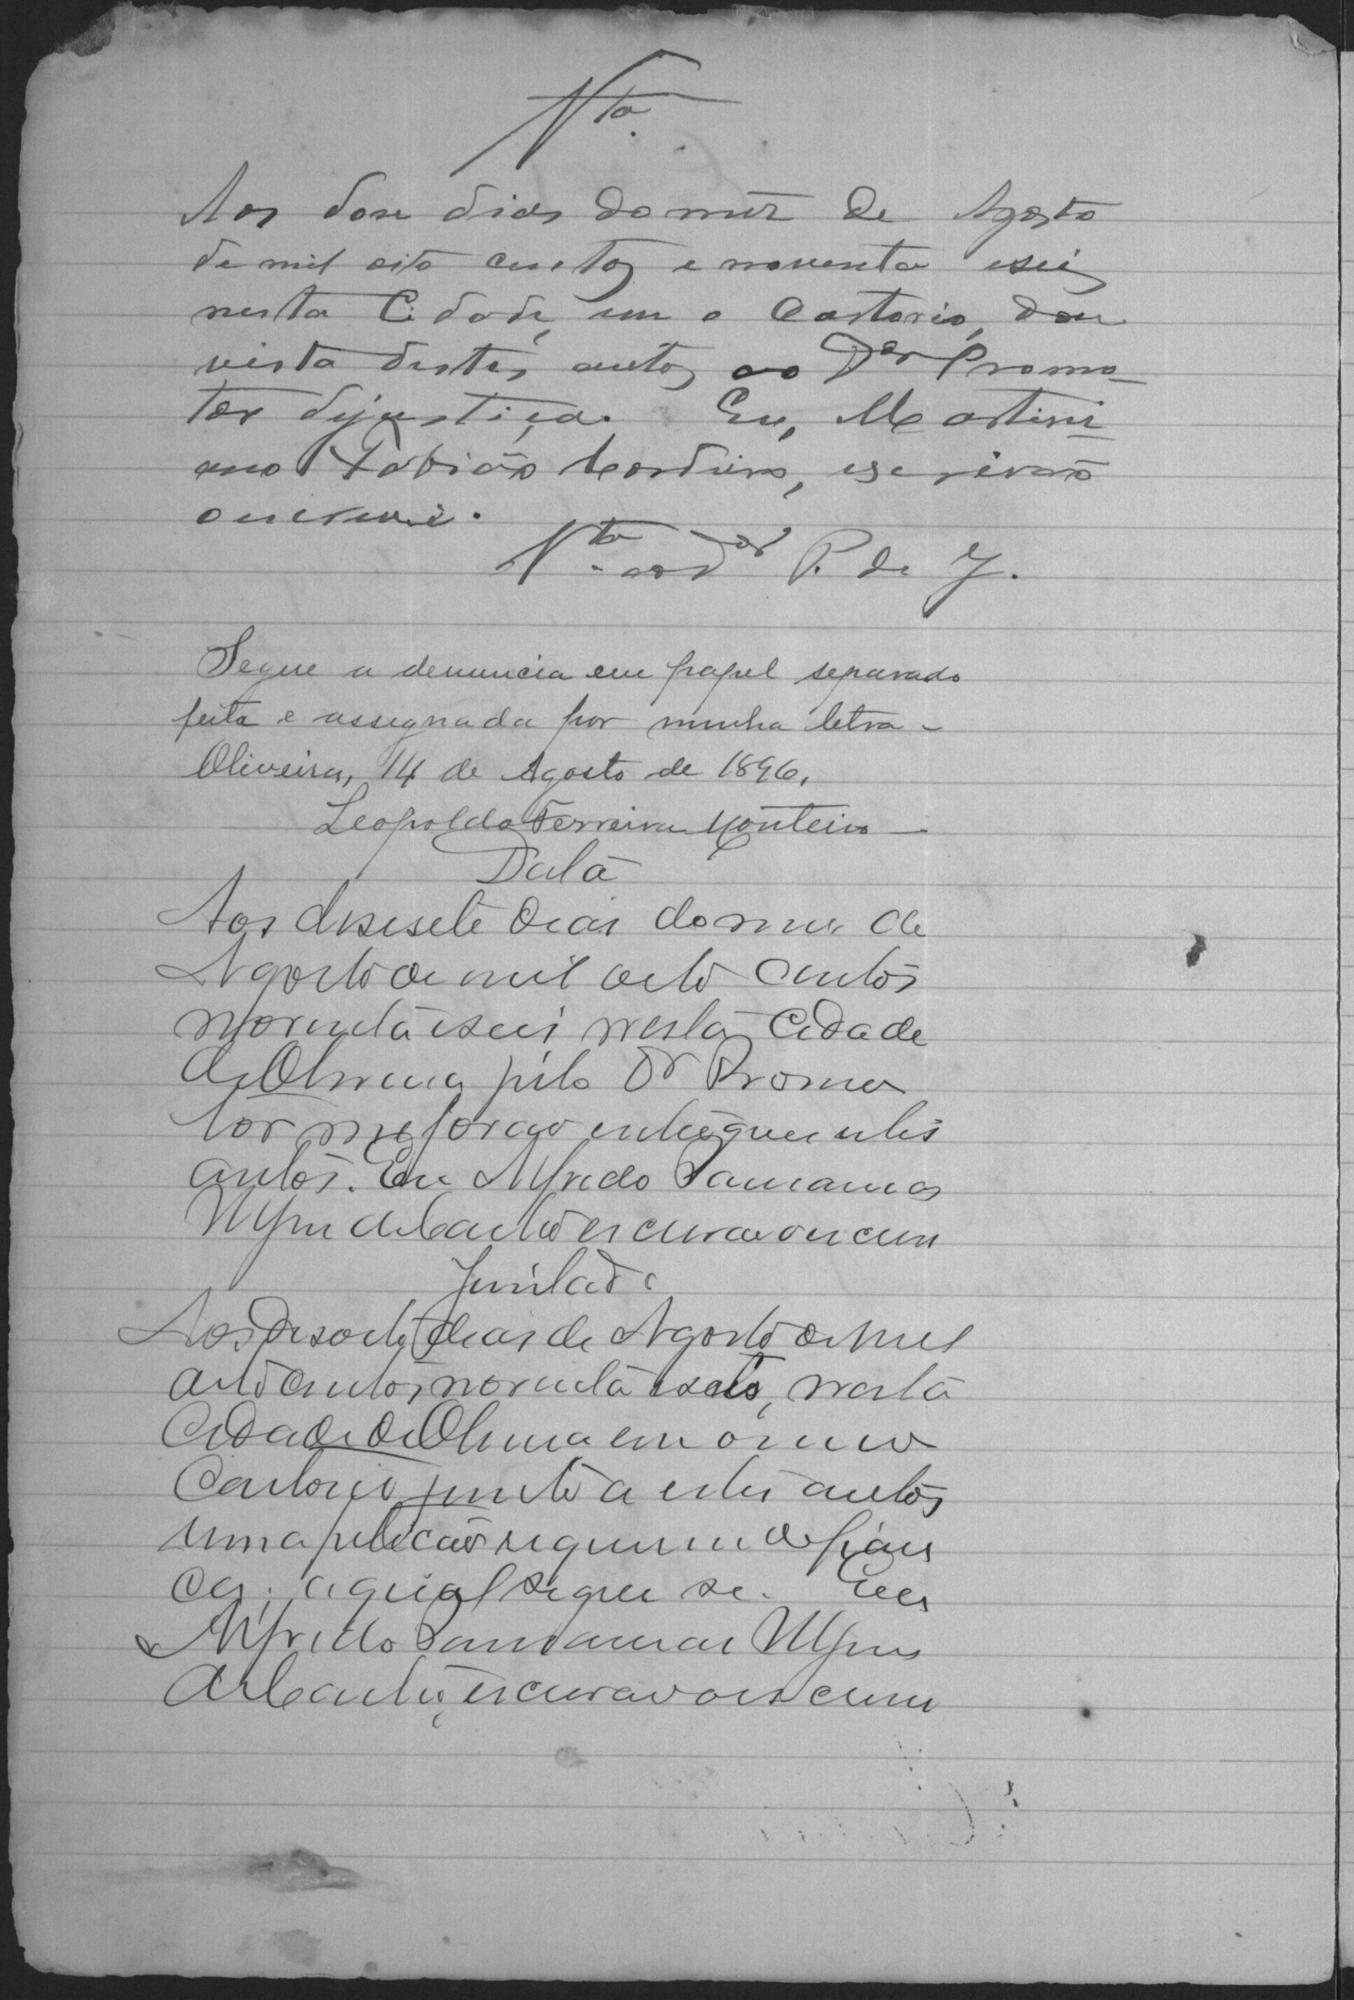 Vta.
Aos dose dias do mez de Agosto
de mil oito centos e noventa e seis
nesta Cidade, em o Cartorio, dou
vista destes autos ao Dor Promo-
tor dejustiça. Eu, Martini-
ano Fabião Cordeiro, escrivão
o escrevi.
Vta. ao Dor P. de J.
Segue a denuncia em papel separado
feita e assignada por minha letra -
Oliveira, 14 de Agosto de 1896.
Leopoldo Ferreira Monteiro -
Data
Aos desesete dias do mes de
Agosto de mil oito centos
noventa e seis nesta Cidade
de Oliveira pelo Dr Promo
tor me forão entregues estes
autos. Eu Alfredo
de Castro escrivão o escrevi
Juntada
Aos desoito dias de Agosto de mil
oito centos noventa e seis, nesta
Cidade de Oliveira em o meu
Cartorio junto a estes autos
uma petição de fian
ça, a qual segue se. Eu
Alfredo
de Castro, escrivão o escrevi